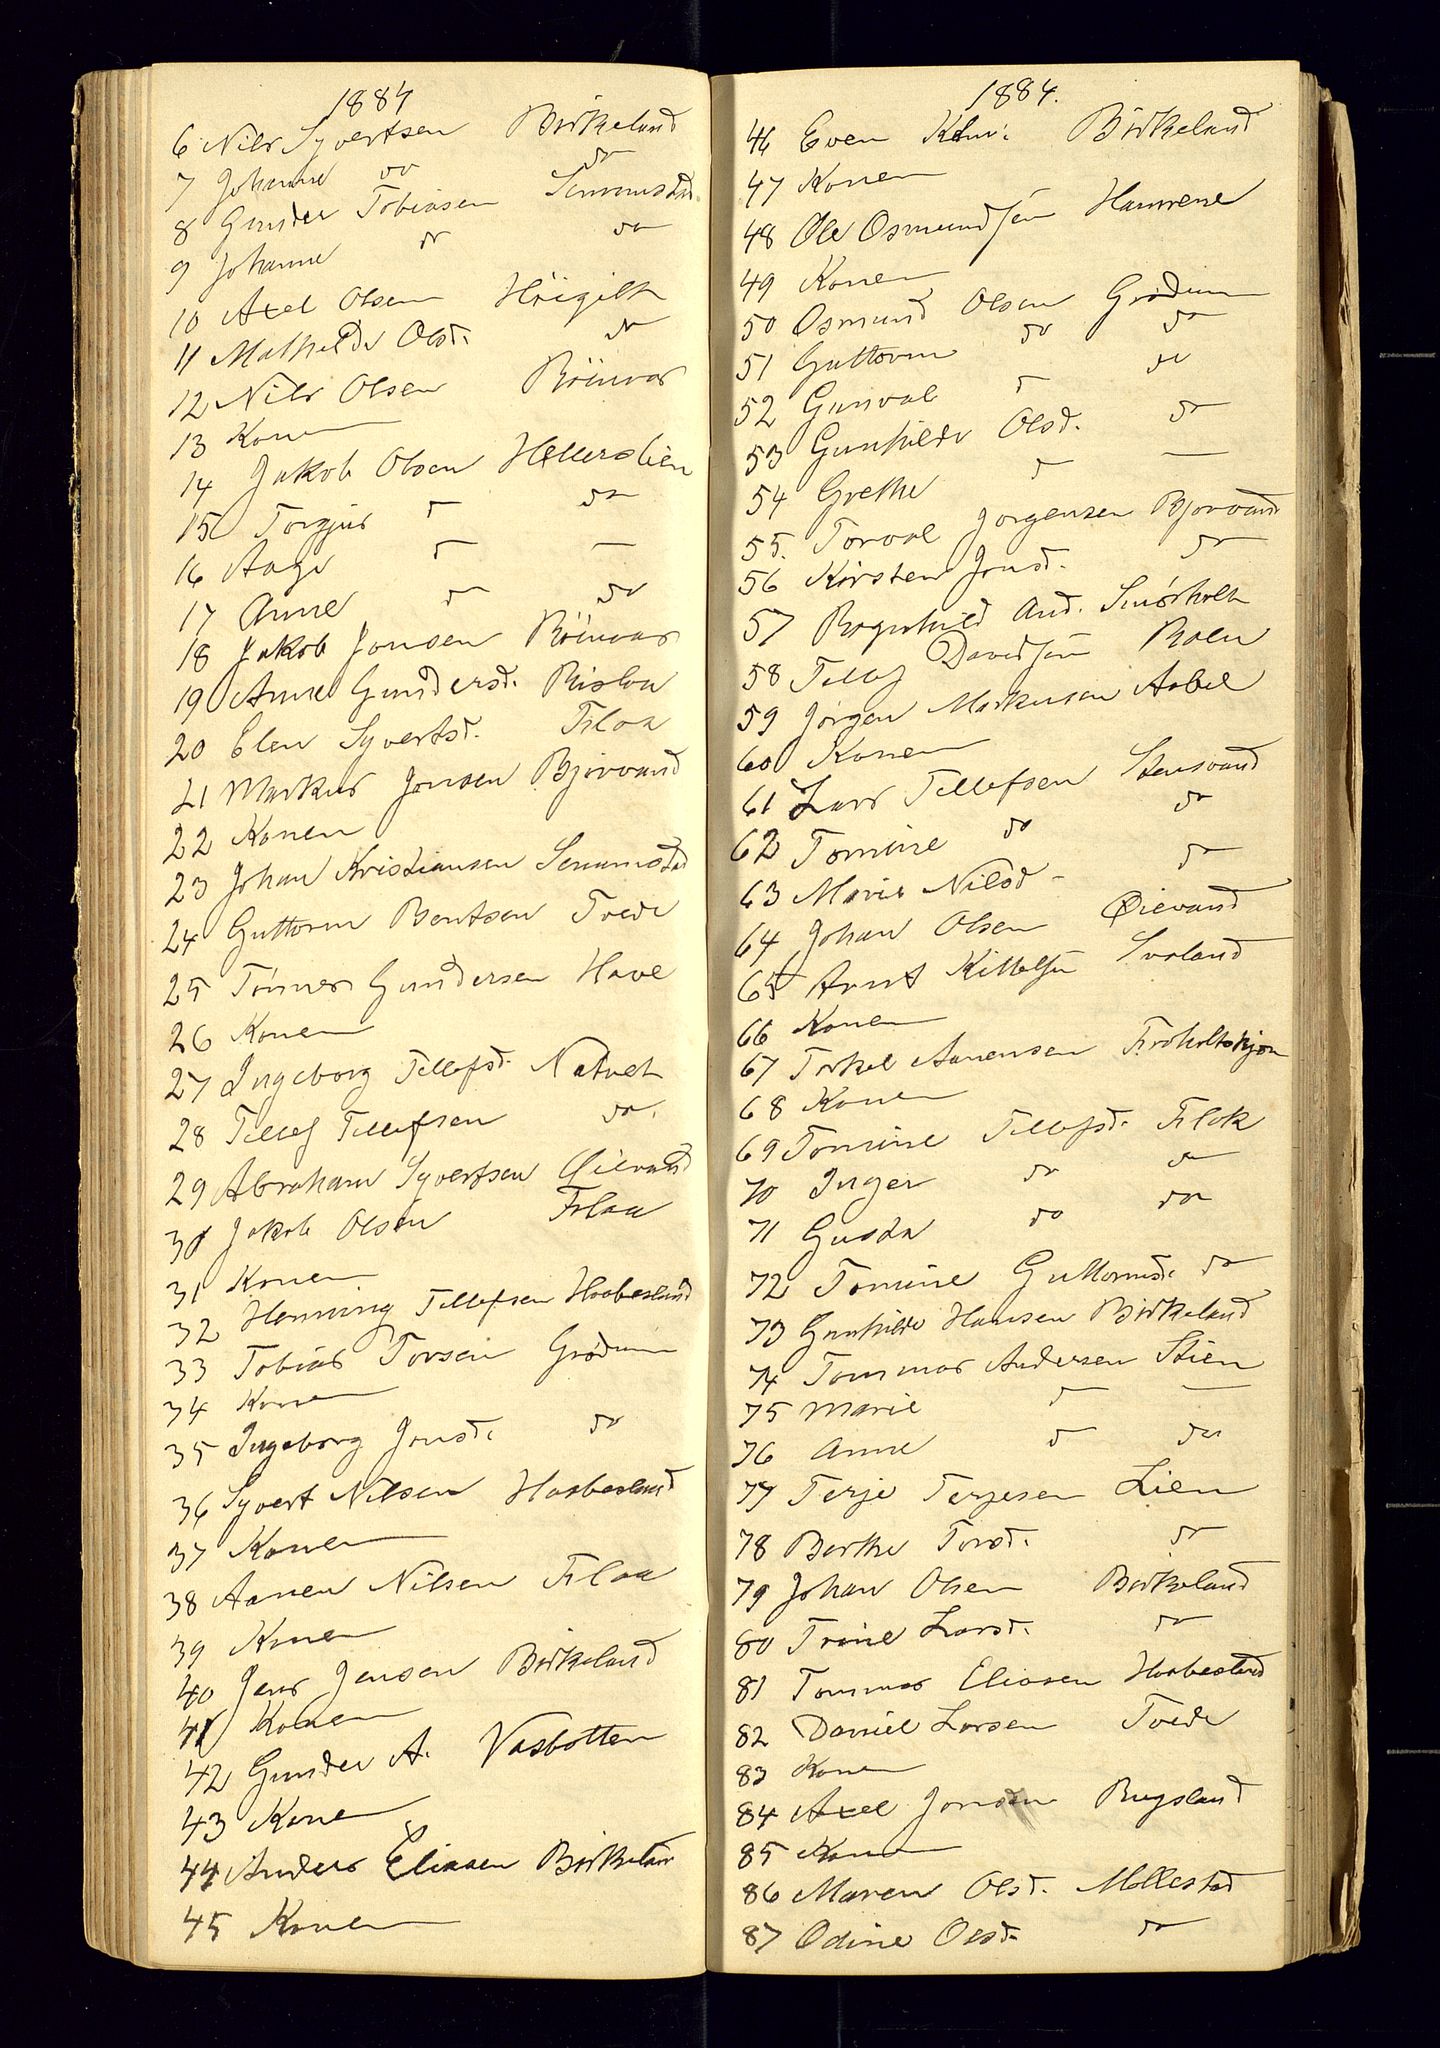 1884
6 Nils Syvertsen Birkeland
7 Johanne do do
8 Gunder Tobiasen Senumstad
9 Johanne do do
10 Axel Olsen Höigilt
11 Mathilde Olsd. do
12 Nils Olsen Röinaas
13 Konen
14 Jakob Olsen Hellerslien
15 Torgjus " do
16 Aage " —
17 Anne " do
18 Jakob Jonsen Röinaas
19 Anne Gundersd. Risløa
20 Elen Syvertsd. Flaa
21 Markus Jonsen Bjorvand
22 Konen
23 Johan Kristiansen Senumstad
24 Guttorm Bentsen Tvede
25 Tönnes Gundersen Have
26 Konen
27 Ingeborg Tellefsd. Natvet
28 Tellef Tellefsen do.
29 Abraham Syvertsen Øievand
30 Jakob Olsen Flaa
31 Konen
32 Henning Tellefsen Haabesland
33 Tobias Torsen Grødum
34 Konen
35 Ingeborg Jonsd. do
36 Syvert Nilsen Haabesland
37 Konen
38 Aanen Nilsen Flaa
39 Konen
40 Jens Jensen Birkeland
41 Konen
42 Gunder A. Vasbotten
43 Konen
44 Anders Eliasen Birkeland
45 Konen
1884.
46 Even Birkeland
47 Konen
48 Ole Osmundsen Hamrene
49 Konen
50 Osmund Olsen Grødum
51 Guttorm do do
52 Gunval " do
53 Gunhilde Olsd. do
54 Grethe " —
55. Torval Jorgensen Bjorvand
56 Kirsten Jonsd. do
57 Ragnhild And. Smörholt
58 Tellef Davidsen Roen
59 Jörgen Markusen Aabel
60 Konen
61 Lars Tellefsen Stensvand
62 Tomine do do
63 Marie Nilsd. do
64 Johan Olsen Øievand
65 Arnt Kittelsen Svaland
66 Konen
67 Torkel Aanensen Froholtskjon
68 Konen
69 Tomine Tellefsd. Flak
70 Inger do do
71 Gusta do do
72 Tomine Guttormsd. do
73 Gunhilde Hansen Birkeland
74 Tommas Andersen Stien
75 Marie " —
76 Anne " do
77 Terje Terjesen Lien
78 Berthe Torsd. do
79 Johan Olsen Birkeland
80 Trine Larsd. do
81 Tommas Eliasen Haabesland
82 Daniel Larsen Tvede
83 Konen
84 Axel Jonsen Rugsland
85 Konen
86 Maren Olsd. Mollestad
87 Odine Olsd. do